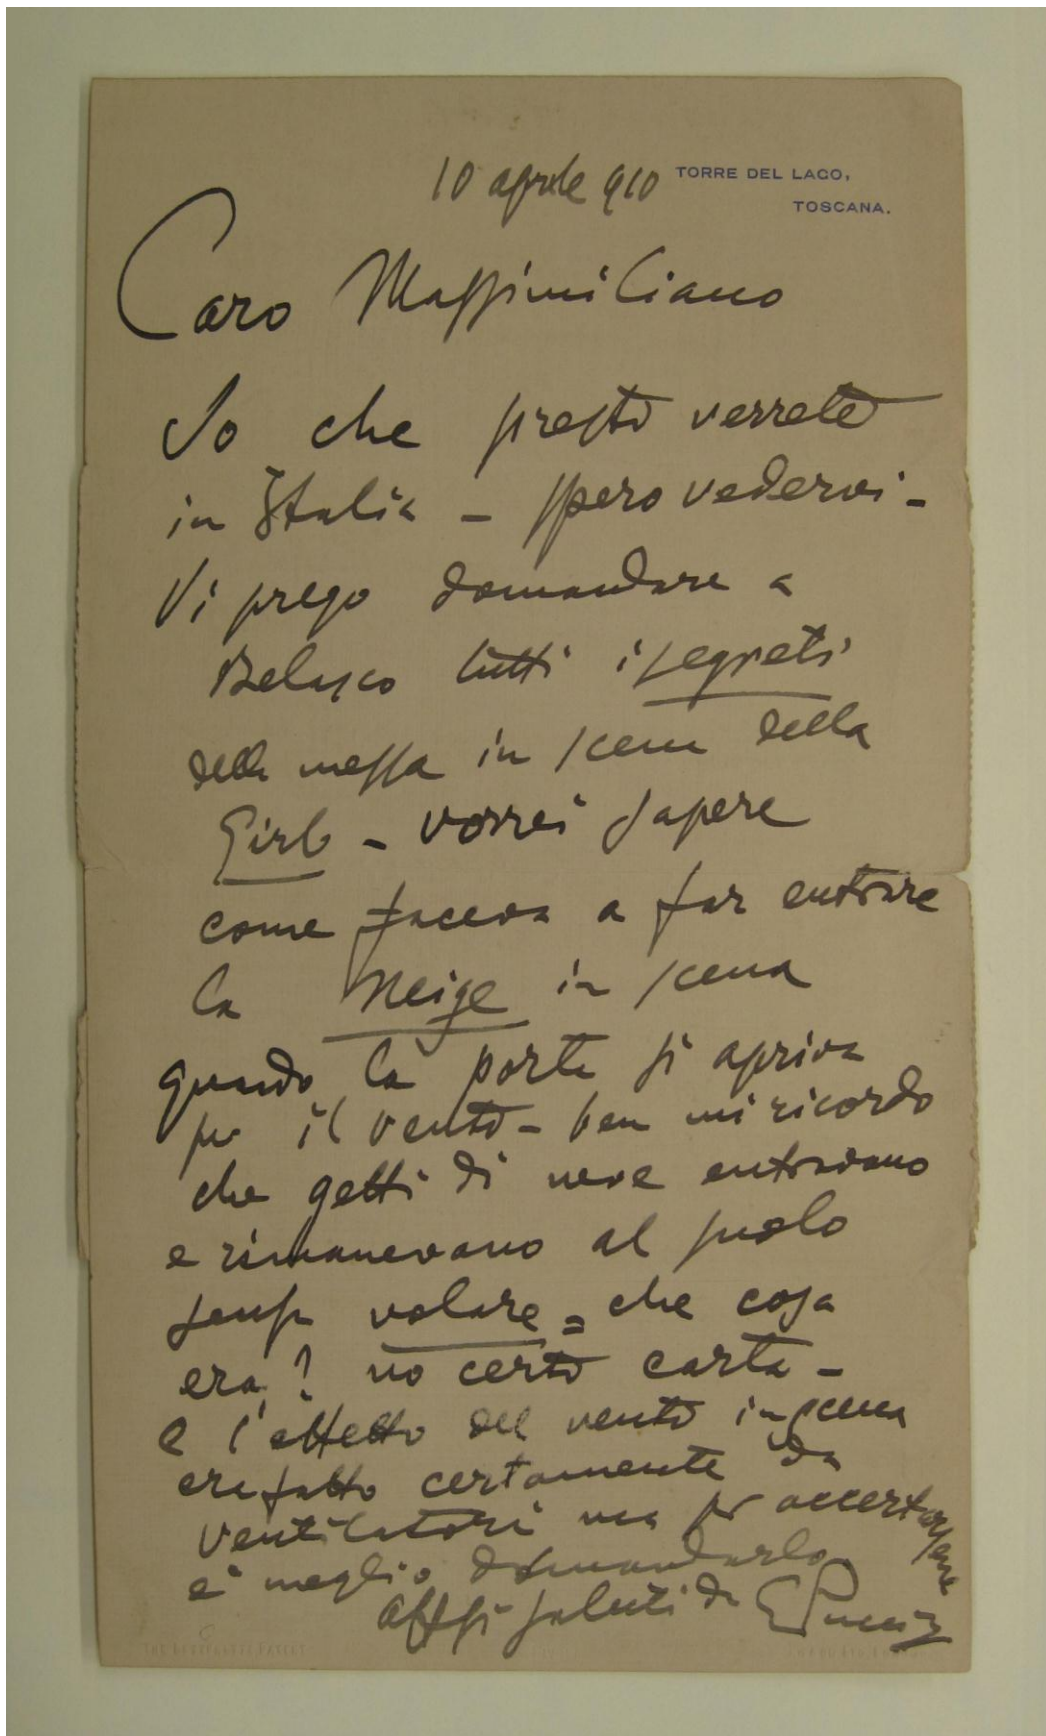 10 aprile 910 TORRE DEL LAGO,
TOSCANA.
Caro Massimiliano
So che presto verrete
in Italia - spero vedervi -
Vi prego domandare a
Belasco tutti i segreti
della messa in scena della
Girl - vorrei sapere
come faceva a far entrare
la Neige in scena
quando la porta si apriva
per il vento - ben mi ricordo
che getti di neve entravano
e rimanevano al suolo
senza volare = che cosa
era? no certo carta -
e l'effetto del vento in scena
era fatto certamente da
ventilatori ma per accertarsene
è meglio domandarlo
affsi saluti da GPuccini